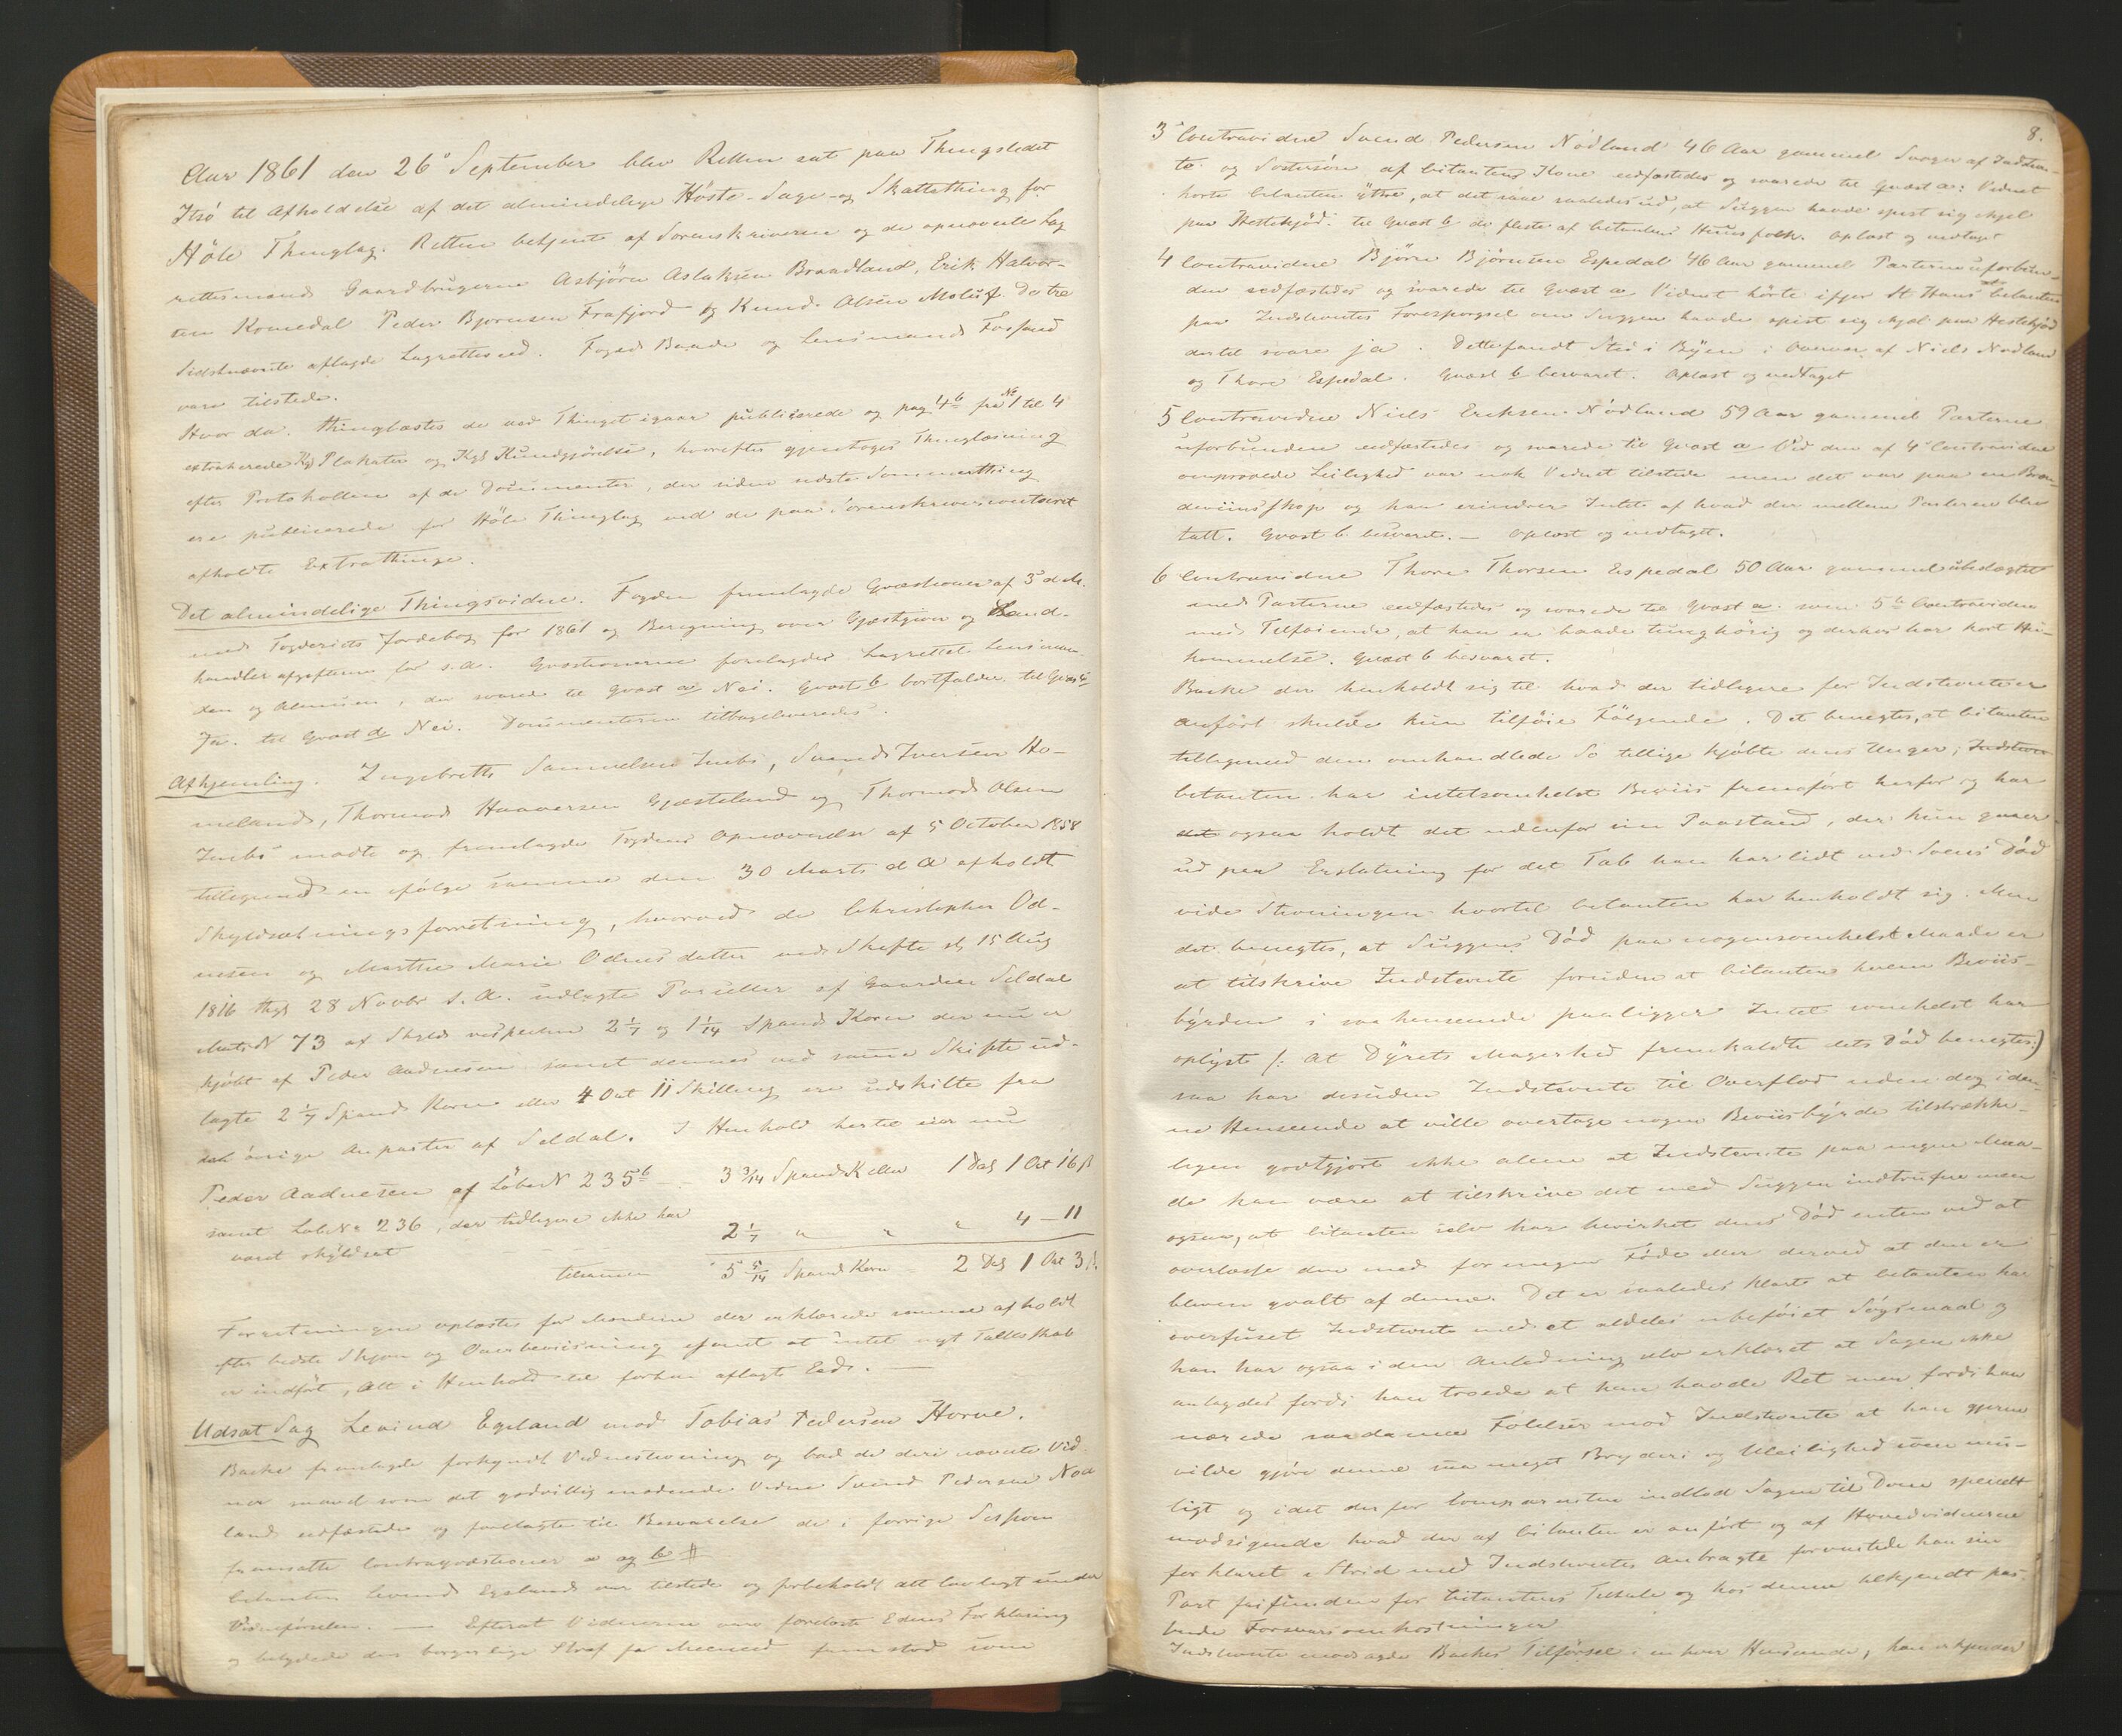 Aar 1861 den 26de September blev Retten sat paa Thingstedet
Itsö til Afholdelse af det almindelige Höste- Sage- og Skattething for
Höle Thinglag. Retten betjent af Sorenskriveren og de opnævnte Lag
rettesmænd Gaardbrugerne Asbjörn Aslaksen Braadland, Erik Halvor-
sen Komedal Peder Bjornsen Frafjord og Knud Olsen Molaug. De tre
sidstnævnte aflagde Lagretteseed. Foged Baade og Lensmand Fossand
vare tilstede.
Hvor da thinglæstes de ved Thinget igaar publicerede og pag 4b fra No 1 til 4
extraherede Kgl Plakater og Kgl Kundgjörelse, hvorefter gjentoges Thinglæsning
efter Protokollen af de Documenter, der siden sidste Sommerthing
ere publicerede for Höle Thinglag ved de paa Sorenskrivercontoiret
afholdte Extrathinge.
Det almindelige Thingsvidne. Fogden fremlagde Qvæstioner af 3 d M.
med Fogderiets Jordebog for 1861 og Beregning over Gjæstgiver og Land-
handler afgifterne for s.A. Qvæstionerne forelagdes Lagrettet Lensman-
den og Almuen, der svarede til Qvæst a Nei. Qvæst b bortfalder til Qvæst c
Ja. til Qvæst d Nei. Documenterne tilbageleveredes.
Afhjemling. Ingebrett Samuelsen Imbs, Svend Iversen Ho-
meland, Thormod Haaversen Gjæsteland og Thormod Olsen
Imbs mødte og fremlagde Fogdens Opnævnelse af 5 October 1858
tilligemed en ifölge samme den 30 Marts d A afholdt
Skyldsætningsforretning, hvorved de Christopher Od-
nesen og Marthe Marie Odnesdatter ved Skifte slt 15 Aug
1816 thgl 28 Novbr s.A. udlagte Parseller af Gaarden Seldal
Matr N 73 af Skyld respective 2 1/7 og 1 1/14 Spand Korn der nu er
kjöbt af Peder Aadnesen samt dennes ved samme Skifte ud-
lagte 2 1/7 Spand Korn eller 4 Ort 11 Skilling ere udskilte fra
de övrige Anparter af Seldal. I Henhold hertil eier nu
Peder Aadnesen af LöbeN 235b - 3 3/14 Spand K eller 1 Dal 1 Ort 16 ß
samt LobeNo 236, der tidligere ikke har
været skyldsat 2 1/7 " " " 4 - 11
tilsammen 5 5/14 Spand Korn - 2 Dlr 1 Ort 3 ß.
Forretningen oplæstes for Mændene der erklærede samme afholdt
efter bedste Skjön og Overbeviisning samt at intet nyt Fælleskab
er indfört, Alt i Henhold til forhen aflagt Eed. —
Udsat Sag Levind Egeland mod Tobias Pedersen Horve.
Backe fremlagde forkyndt Vidnestevning og bad de deri nævnte Vid-
ner saavel som det godvillig mødende Vidne Svend Pedersen Nød
land edfæstede og forelagte til Besvarelse de i forrige Session
fremsatte Contraqvæstioner a og b #
Citanten Levind Egeland var tilstede og forbeholdt alt lovligt under
Vidneförselen. — Efterat Vidnerne vare forelæste Edens Forklaring
og betydede den borgerlige Straf for Meeneed fremstod som
8.
3 Contravidne Svend Pedersen Nödland 46 Aar gammel Svoger af Indstevn-
te og Södsterson af Citantens Kone eedfæstedes og svarede til Qvæst a: Vidnet
hörte Citanten yttre, at det saae saaledes ud, at Suggen havde spist sig ihjel
paa Hestekjöd. til Qvæst b de fleste af Citantens Huusfolk. Oplæst og vedtaget
4 Contravidne Björn Björnsen Espedal 46 Aar gammel Parterne uforbun-
den eedfæstedes og svarede til Qvæst a Vidnet hörte ifjor St Hans at Citanten
paa Indstevntes Forespörgsel om Suggen havde spist sig ihjel paa Hestekjöd
dertil svare ja. Dette fandt Sted i Byen i Overvær af Niels Nødland
og Thore Espedal. Qvæst b besvaret. Oplæst og vedtaget
5 Contravidne Niels Eriksen Nödland 59 Aar gammel Parterne
uforbunden eedfæstedes og svarede til Qvæst a Ved den af 4de Contravidne
omprovede Leilighed var nok Vidnet tilstede men det var paa en Bræn
deviinsshop og han erindrer Intet af hvad der mellem Parterne blev
talt. Qvæst b besvaret. — Oplæst og vedtaget.
6 Contravidne Thore Thorsen Espedal 50 Aar gammel ubeslægtet
med Parterne eedfæstedes og svarede til Qvæst a. som 5te Contravidne
med Tilföiende, at han er baade tunghörig og derhos har kort Hu-
kommelse. Qvæst b besvaret.
Backe der henholdt sig til hvad der tidligere for Indstevnte er
anfört skulde kun tilföie Fölgende. Det benegtes, at Citanten
tilligemed den omhandlede So tillige kjöbte dens Unger, Indstevn
Citanten har intetsomhelst Beviis fremfört herfor og har
det ogsaa holdt det udenfor sin Paastand, der kun gaaer
ud paa Erstatning for det Tab han har lidt ved Soens Död
vide Stevningen hvortil Citanten har henholdt sig. Men
det benegtes, at Suggens Död paa nogensomhelst Maade er
at tilskrive Indstevnte foruden at Citanten hvem Beviis-
byrden i saa henseende paaligger Intet somhelst har
oplyst /: At Dyrets Magerhed fremkaldte dets Död benegtes:)
saa har desuden Indstevnte til Overflod uden dog i den-
ne Henseende at ville overtage nogen Beviisbyrde tilstrække-
ligen godtgjort ikke alene at Indstevnte paa ingen Maa-
de kan være at tilskrive det med Suggen indtrufne men
ogsaa, at Citanten selv har bevirket dens Död enten ved at
overlæsse den med for megen Föde eller derved at den er
bleven qvalt af denne. Det er saaledes klart at Citanten har
overfuset Indstevnte med et aldeles ubeföiet Sögsmaal og
han har ogsaa i den Anledning selv erklæret at Sagen ikke
anlagdes fordi han troede at han havde Ret men fordi han
nærede saadanne Følelser mod Indstevnte at han gjerne
vilde gjöre denne saa meget Bryderi og Uleilighed som mu-
ligt og idet derfor Comparenten indlod Sagen til Dom specielt
modsigende hvad der af Citanten er anfört og af Hovedvidnerne
forklaret i Strid med Indstevntes Anbragte forventede han sin
Part frifunden for Citantens Tiltale og hos denne tilkjendt pas-
sende Forsvarsomkostninger
Indstevnte modsagde Backes Tilförsel i enhver Henseende, han erkjender